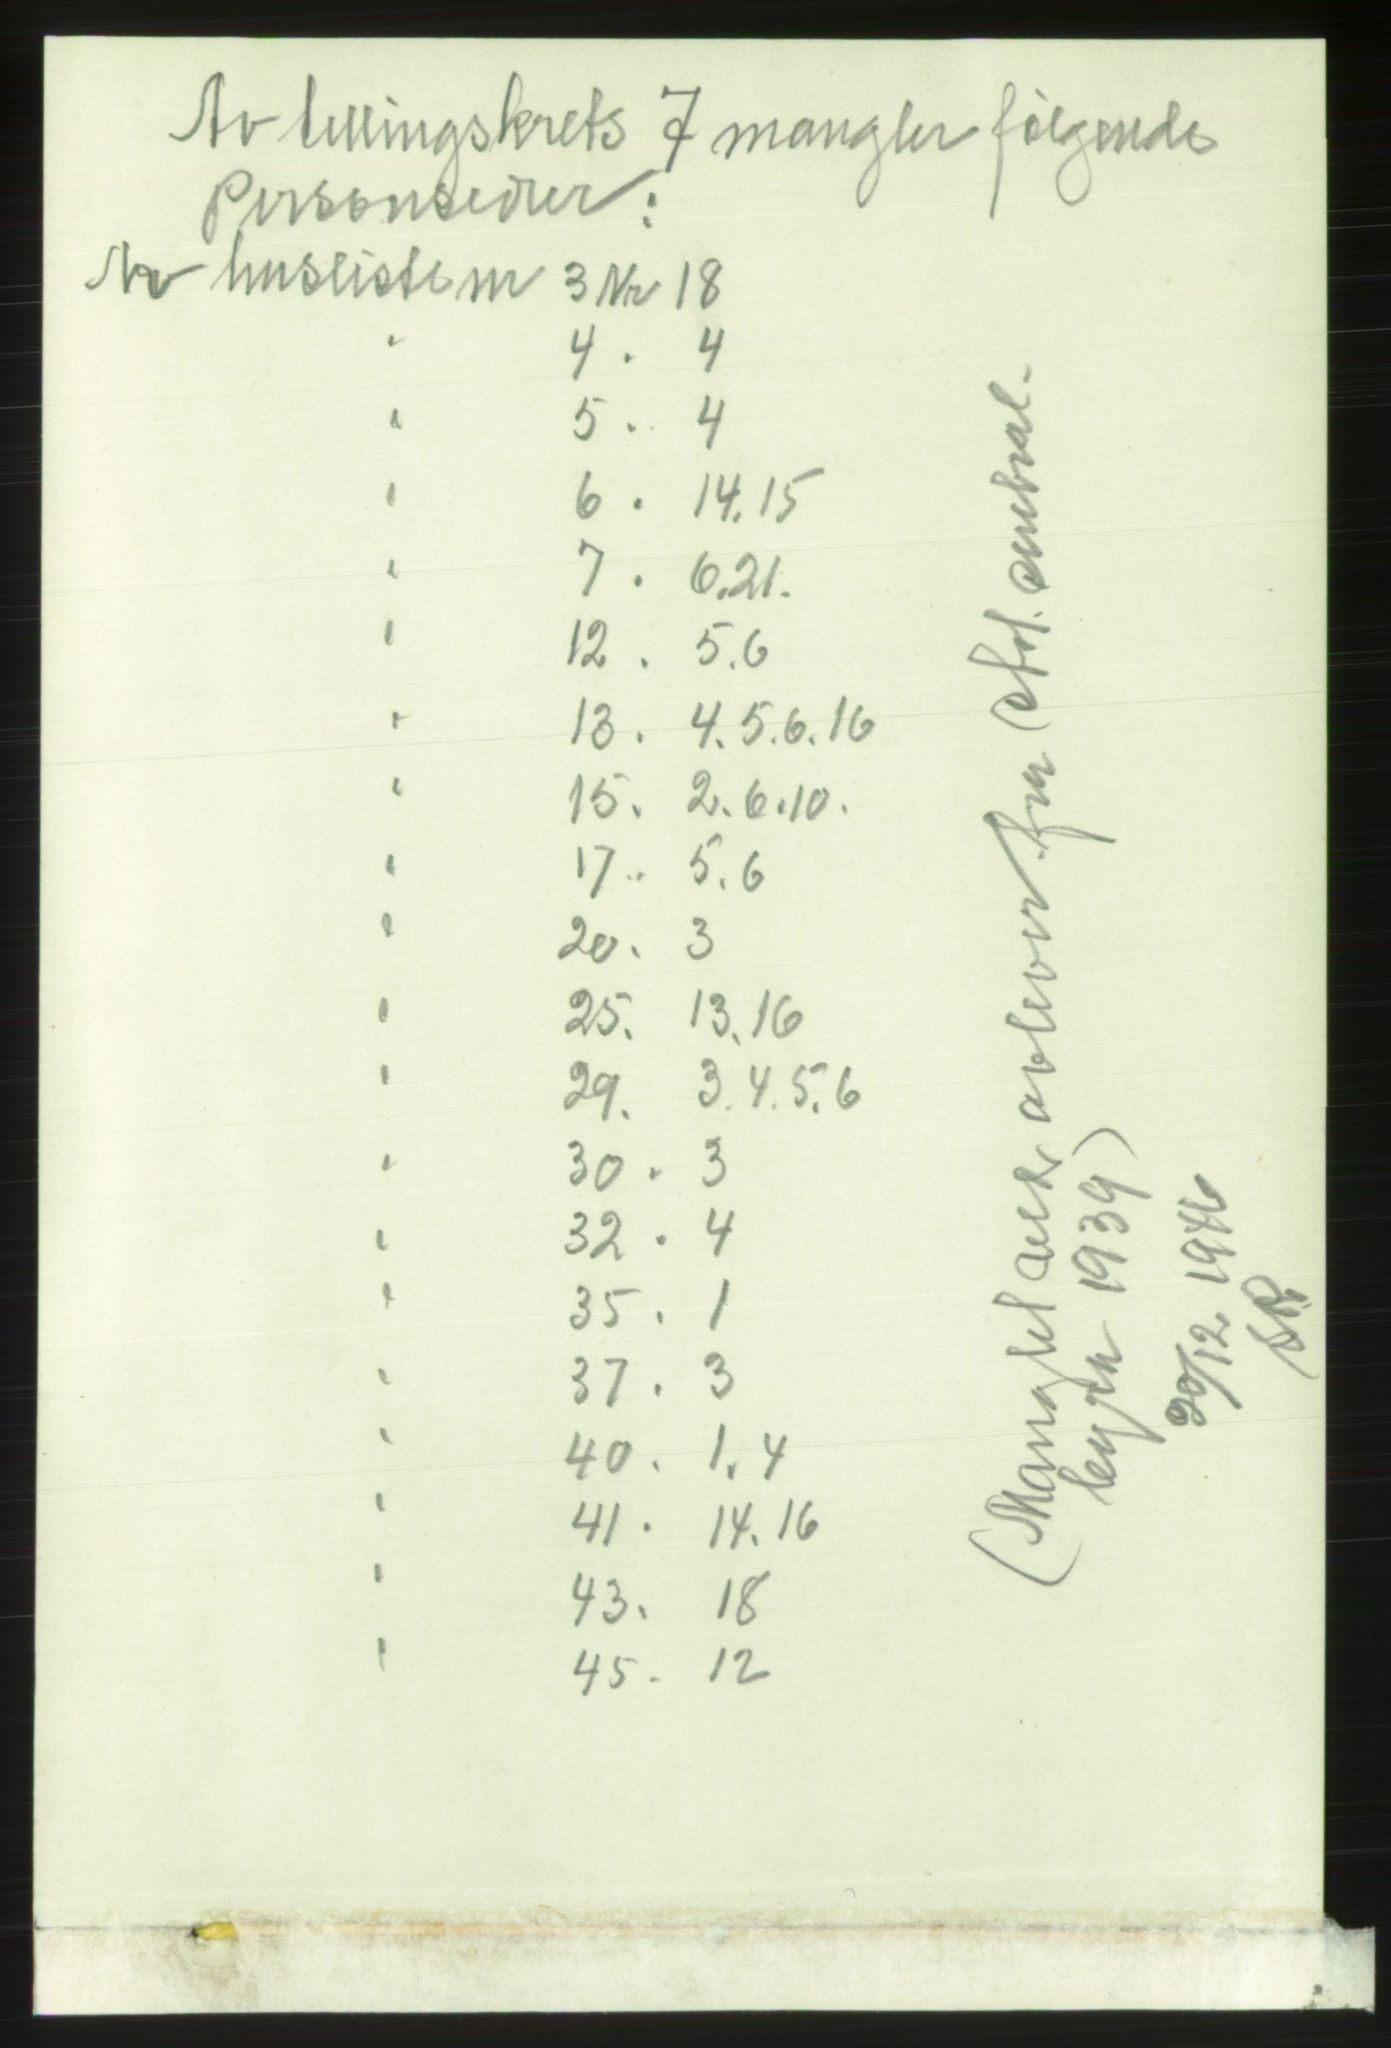 Av tellingskrets 7 mangler følgende
Personsedler:
Av husliste nr 3 Nr 18
" 4 . 4
" 5 . 4
" 6 . 14.15
" 7 . 6.21.
" 12 . 5.6
" 13 . 4.5.6.16
" 15 . 2.6.10.
" 17 . 5.6
" 20 . 3
" 25. 13.16
" 29. 3.4.5.6
" 30 . 3
" 32 . 4
" 35 . 1
" 37 . 3
" 40 . 1.4
" 41 . 14.16
" 43. 18
" 45. 12
(Manglet ved avlever. fra
1939)
20/12 1946